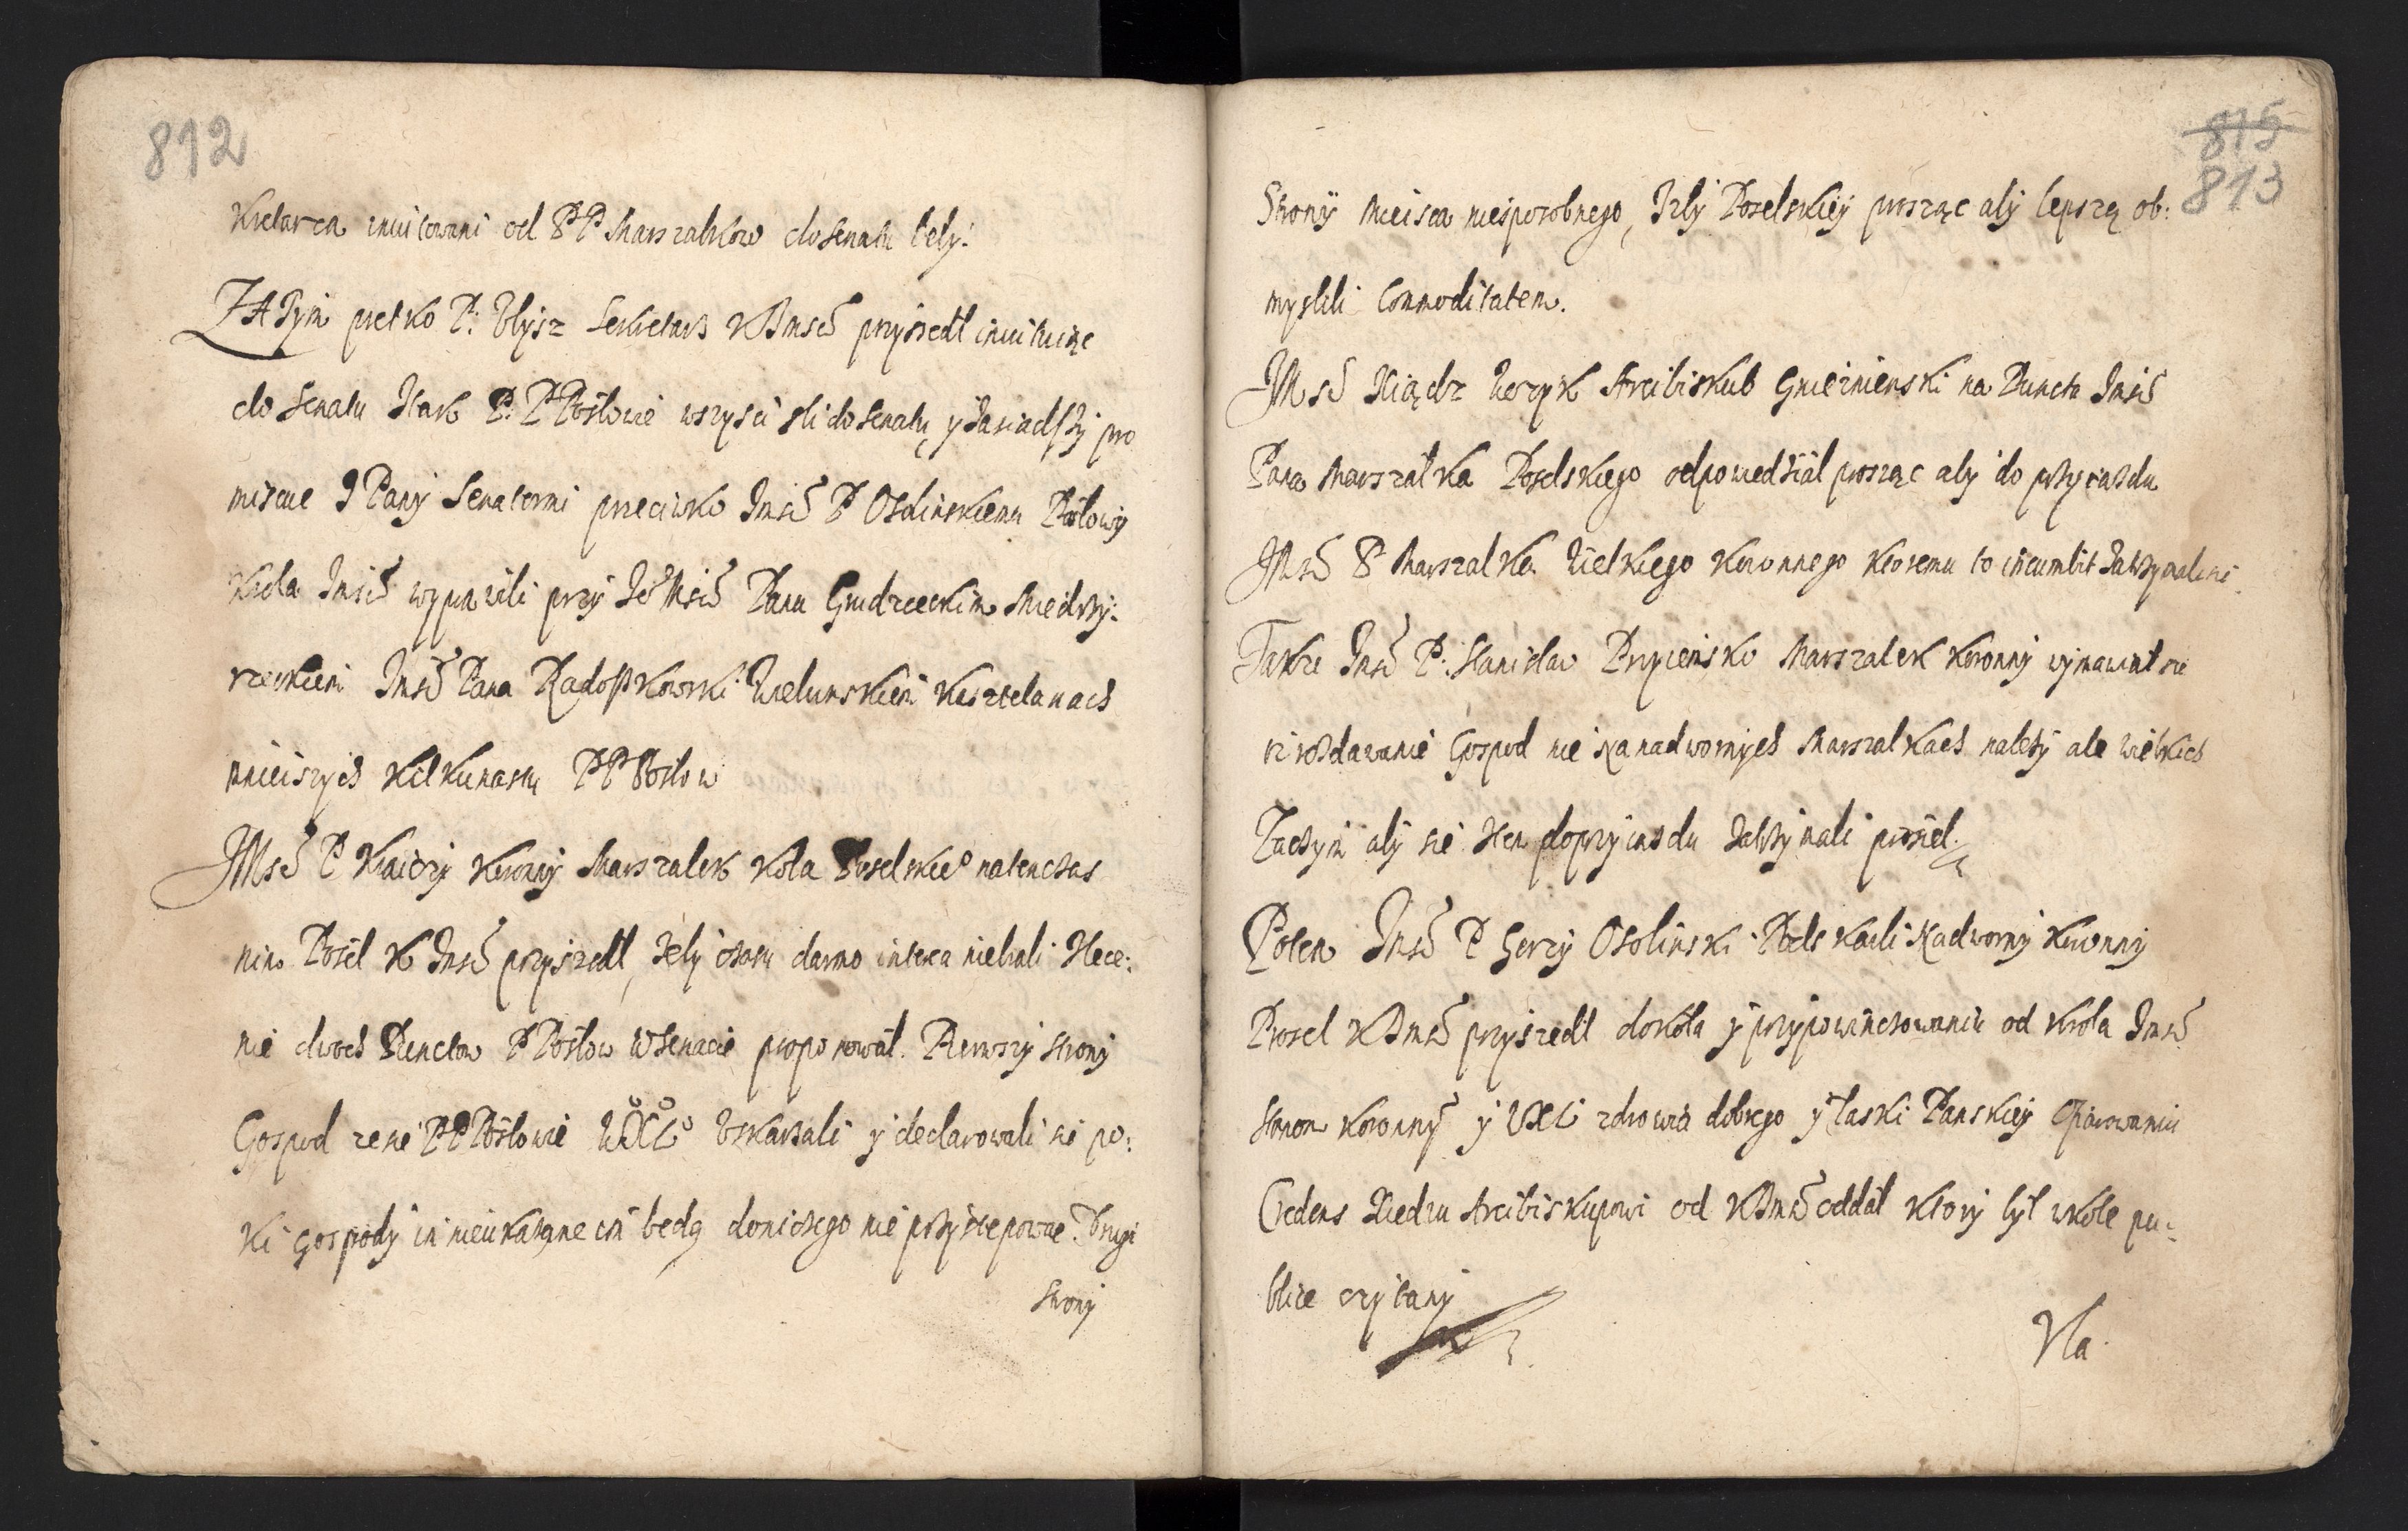 812
Kretarza inuitowani od PP Marszalkow do Senatu beli.
ZATym pretko P: Ulysz Sekretarz KJMsci przyszedl inuituiąc
do Senatu Itak P. P Posłowie wszysci szli do Senatu, y Zasiadszy pro
miscue I Pany Senatormi przeciwko Jmsci P Osolinskiemu Posłowy
Krola Jmsci wyprawili przy Je Msci Panu Grudzieckim Miedzy:
rzeckiem Jmsci Pana Radoszkowski Wielunskiem Kasztelanach
mnieiszych Kilkunastu PP Posłow
JMsc P Kraiczy Koronny Marszalek Kola Poselskieo natenczas
nim Poseł K Jmsci przyszedl, żeby czasu darmo interea nietrali Hece:
nie dwoch Punctow P Posłow w Senacie proponował. Pierwszy strony
Gospod ze sie PP Posłowie WXL Uskarzali y declarowali sie po:
Ki Gospody in nieukazane im będą do niczego nie przystepowac. Drugi
strony
815
813
Strony mieisca niesposobnego, Izby Poselskiey prosząc aby lepszą ob:
myslili Commoditatem.
JMsc Xiądz Wezyk Arcibiskub Gnieznienski na Puncta Jmsci
Pana Marszałka Poselskiego odpowiedział prosząc aby do przyiazdu
JMsci P Marszalka Wielkiego Koronnego Ktoremu to incumbit Zatrzymali sie.
Takze Jmsc P: Stanislaw Przyiemsky Marszalek Koronny wymawiał sie
iz rozdawanie Gospod nie Na nadwornych Marszalkach należy ale wielkich
Zaczym aby sie ten do przyiazdu Zatrzymali prosiel.
Potem Jmsc P Gerzy Osolinski Podskarbi Nadworny Koronny
Poseł KJmsci przyszedł do Koła y przy powinszowaniu od Krola Jmsci
stanom Koronny y WXL zdrowia dobrego y łaski Panskiey Ofiarowaniu
Credens Xiedzu Arcibiskupowi od KJmsci oddał Ktory był w Kole pu:
blice czytany
Vla